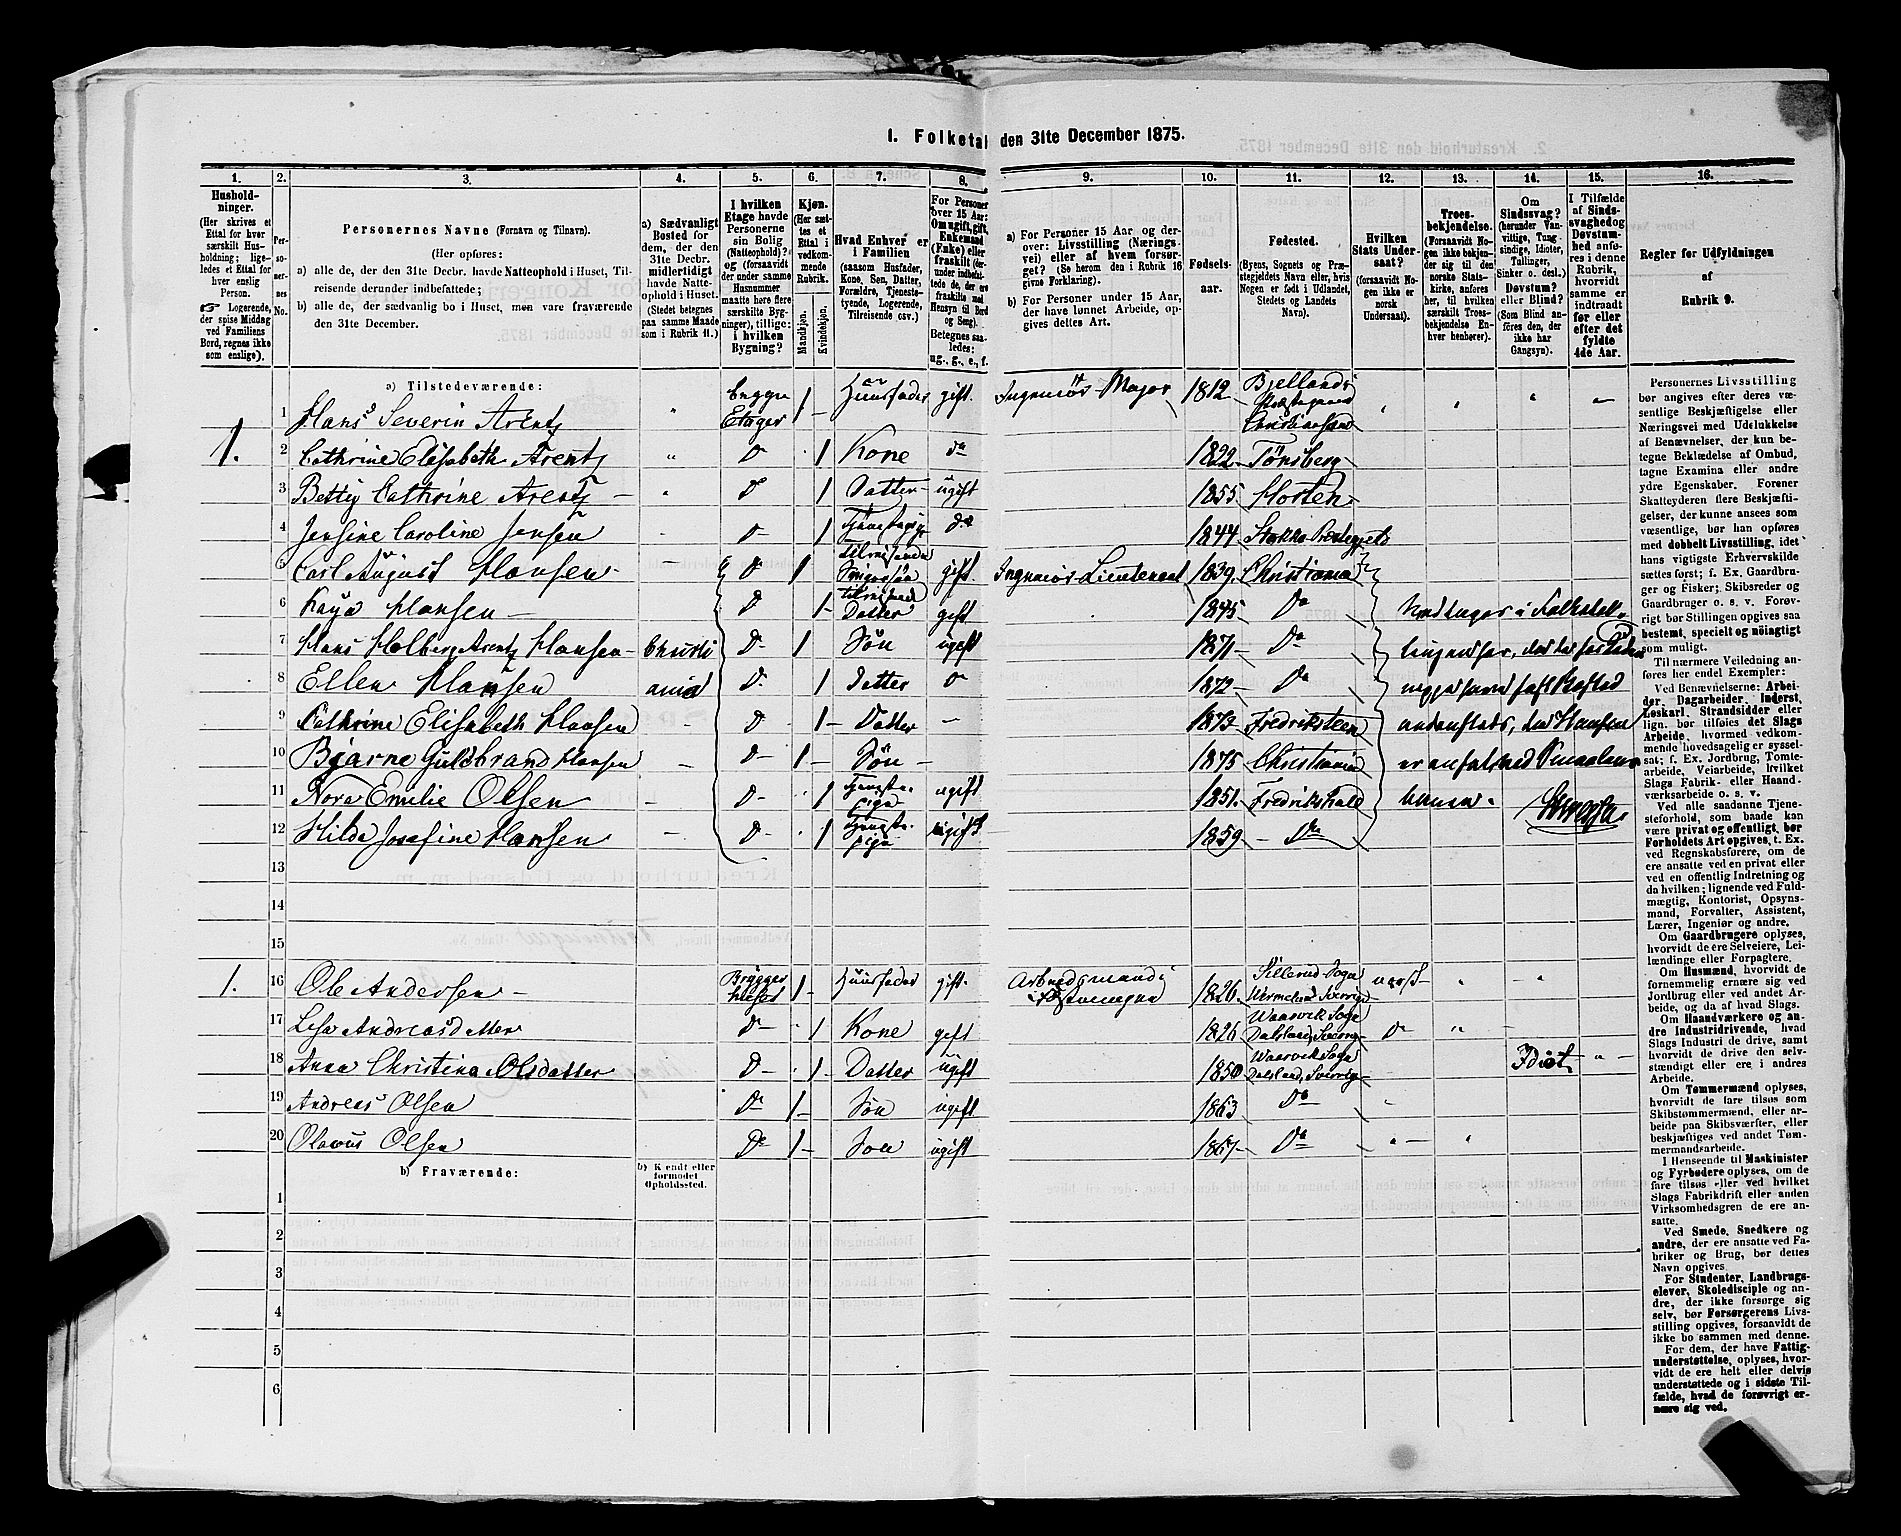 1. Folketal den 31te December 1875.
1. 2. 3. 4. 5. 6. 7. 8. 9. 10. 11. 12. 13. 14. 15. 16.
Hushold-
ninger.
(Her skrives et
Ettal for hver
særskilt Hus-
holdning; lige-
ledes et Ettal for
hver enslig
Person.
☞ Logerende,
der spise Middag
ved Familiens
Bord, regnes ikke
som enslige).
Per-
so-
ner-
nes
No.
Personernes Navne (Fornavn og Tilnavn).
(Her opføres:
a) alle de, der den 31te Decbr. havde Natteophold i Huset, Til-
reisende derunder indbefattede;
b) alle de, der sædvanlig bo i Huset, men vare fraværende
den 31te December.
a) Sædvanligt
Bosted for
dem, der den
31te Decbr.
midlertidigt
havde Natte-
ophold i Huset.
(Stedet betegnes
paa samme Maade
som i Rubrik 11.)
I hvilken
Etage havde
Personerne
sin Bolig
(Natteophold)?
og (forsaavidt
der under samme
Husnummer
maatte høre flere
særskilte Byg-
ninger), tillige:
i hvilken
Bygning?
Kjøn.
(Her sæt-
tes et
Ettal i
vedkom-
mende
Rubrik.
Mandkjøn.
Kvindekjøn.
Hvad Enhver er
i Familien
(saasom Husfader,
Kone, Søn, Datter,
Forældre, Tjeneste-
tyende, Logerende,
Tilreisende osv.)
For Personer
over 15 Aar:
Om ugift, gift,
Enkemand
(Enke) eller
fraskilt (der-
under indbefat-
tede de, der ere
fraskilte med
Hensyn til Bord
og Seng).
Betegnes saa-
ledes:
ug., g., e., f.
a) For Personer 15 Aar og der-
over: Livsstilling (Nærings-
vei) eller af hvem forsør-
get? (Se herom den i Rubrik 16
givne Forklaring).
b) For Personer under 15 Aar,
der have lønnet Arbeide, op-
gives dettes Art.
Fødsels-
aar.
Fødested.
(Byens, Sognets og Præ-
stegjeldets Navn eller, hvis
Nogen er født i Udlandet,
Stedets og Landets
Navn).
Hvilken
Stats Under-
saat?
(forsaavidt No-
gen ikke er
norsk
Undersaat).
Troes-
bekjendelse.
(Forsaavidt No-
gen ikke bekjen-
der sig til den
norske Stats-
kirke, anføres
her, til hvilken
særskilt Troes-
bekjendelse En-
hver henhører).
Om
Sindssvag?
(herunder Van-
vittige, Tung-
sindige, Idioter,
Tullinger,
Sinker o. desl.)
Døvstum?
eller Blind?
(Som Blind an-
føres den, der
ikke har
Gangsyn).
I Tilfælde
af Sinds-
svaghed og
Døvstum-
hed anfø-
res i denne
Rubrik,
hvorvidt
samme er
indtraadt
før eller
efter det
fyldte
4de Aar.
Regler for Udfyldningen
af
Rubrik 9.
a) Tilstedeværende:
1. 1 Hans Severin Arentz " begge Etager 1 Huusfader gift. Ingeniör Major 1812 Bjellands Præstegjeld Christiansand
2 Cathrine Elisabeth Arentz " D 1 Kone do 1822 Tönsberg
3 Betty Cathrine Arentz " D 1 Datter ugift 1855 Horten
4 Jensine Caroline Jensen D 1 Tjenestepige do 1844 Stokke Præstegjeld
5 Carl August Hansen D 1 tilreisende Svigersön gift. Ingeniör Lieutenant 1839 Christiania
6 Kaya Hansen D 1 tilreisende Datter gift 1845 Do
7 Hans Holberg Arentz Hansen Christi D 1 Sön ugift 1871 Do
8 Ellen Hansen ania D 1 Datter D 1872 Do
9 Cathrine Elisabeth Hansen D 1 Datter 1873 Fredriksteen
10 Bjarne Guldbrand Hansen D 1 Sön 1875 Christiania
11 Nora Emilie Olsen D 1 Tjenestepige ugift 1851 Fredrikshald
12 Hilda Josefine Hansen D 1 Tjenestepige ugift 1859 Do
13
14
15
1. 16 Ole Andersen Bryggerhuset 1 Huusfader gift. Arbeidsmand i Fæstningen 1826 Sillerud Sogn Wermeland Sverrig norsk
17 Lisa Andreasdatter D 1 Kone gift 1826 Waarvik Sogn Dalsland, Sverrig D
18 Anna Christina Olsdatter D 1 Datter ugift 1850 Waarvik Sogn Dalsland, Sverrig Idiot
19 Andreas Olsen D 1 Sön ugift 1863 Do
20 Olavus Olsen D 1 Sön ugift 1867 Do
b) Fraværende:
b) Kjendt eller
formodet
Opholdssted.
1
2
3
4
5
6
Personernes Livsstilling
bør angives efter deres væ-
sentlige Beskjæftigelse eller
Næringsvei med Udelukkelse
af Benævnelser, der kun be-
tegne Beklædelse af Ombud,
tagne Examina eller andre
ydre Egenskaber. Forener
Skatteyderen flere Beskjæfti-
gelser, der kunne ansees som
væsentlige, bør han opføres
med dobbelt Livsstilling, idet
hans vigtigste Erhvervskilde
sættes først; f. Ex. Gaardbru-
ger og Fisker; Skibsreder og
Gaardbruger o. s. v. Forøv-
rigt bør Stillingen opgives saa
bestemt, specielt og nöiagtigt
som muligt.
Til nærmere Veiledning an-
føres her endel Exempler:
Ved Benævnelserne: Arbei-
der, Dagarbeider, Inderst,
Løskarl, Strandsidder eller
lign. bør tilføies det Slags
Arbeide, hvormed vedkom-
mende hovedsagelig er syssel-
sat; f. Ex. Jordbrug, Tomte-
arbeide, Veiarbeide, hvilket
Slags Fabrik- eller Haand-
værksarbeide o. s. v.
Ved alle saadanne Tjene-
steforhold, som baade kan
være privat og offentligt, bør
Forholdets Art opgives, t. Ex.
ved Regnskabsførere, om de
ere ansatte ved en privat eller
ved en offentlig Indretning og
da hvilken; lignende ved Fuld-
mægtig, Kontorist, Opsyns-
mand, Forvalter, Assistent,
Lærer, Ingeniør og andre.
Om Gaardbrugere oplyses,
hvorvidt de ere Selveiere, Lei-
lændinge eller Forpagtere.
Om Husmænd, hvorvidt de
fornemmelig ernære sig ved
Jordbrug eller ved andet Ar-
beide, og da af hvad Slags.
Om Haandværkere og an-
dre Industridrivende, hvad
Slags Industri de drive, samt
hvorvidt de drive den selv-
stændigt eller ere i andres
Arbeide.
Om Tømmermænd oplyses,
hvorvidt de fare tilsøs som
Skibstømmermænd, eller ar-
beide paa Skibsværfter, eller
beskjæftiges ved andet Tøm-
mermandsarbeide.
I Henseende til Maskinister
og Fyrbødere oplyses, om de
fare tilsøs eller ved hvilket
Slags Fabrikdrift eller anden
Virksomhedsgren de ere an-
satte.
Ved Smede, Snedkere og
andre, der ere ansatte ved Fa-
briker og Brug, bør dettes
Navn opgives.
For Studenter, Landbrugs-
elever, Skoledisciple og an-
dre, der ikke forsørge sig
selv, bør Forsørgerens Livs-
stilling opgives, forsaavidt de
ikke bo sammen med denne.
For dem, der have Fattig-
understøttelse, oplyses, hvor-
vidt de ere helt eller delvis
understøttede og i sidste Til-
fælde, hvad de forøvrigt er-
nære sig ved.